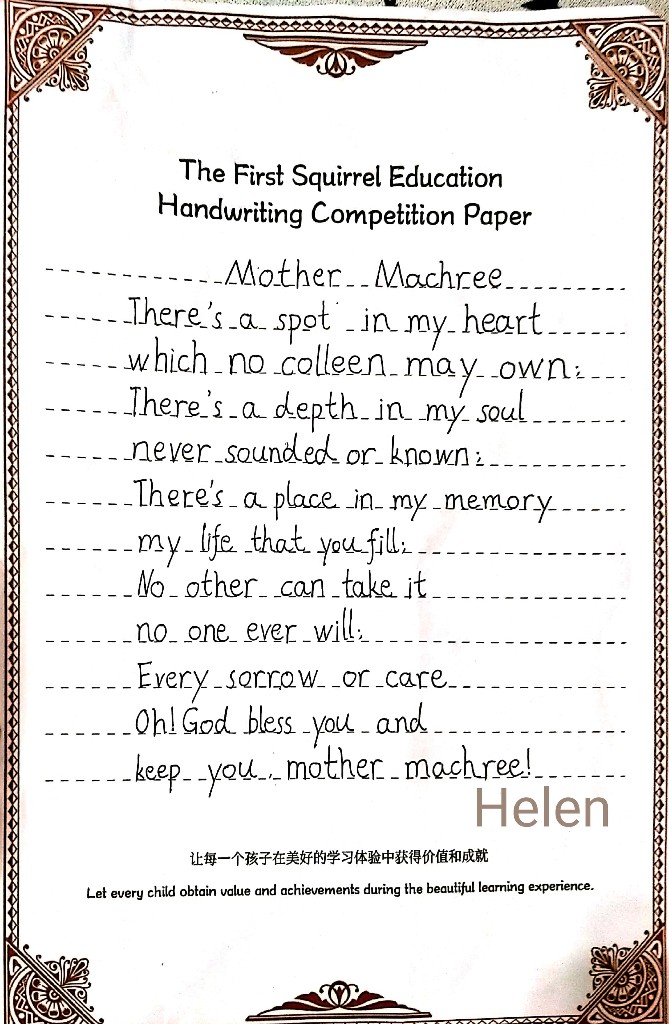 The First Squirrel Education
Handwriting Competition Paper
Mother Machree
There's a spot in my heart
which no colleen may own;
There's a depth in my soul
never sounded or known;
There's a place in my memory
my life that you fill;
No other can take it
no one ever will;
Every sorrow or care
Oh! God bless you and
keep you, mother machree!
Helen
让每一个孩子在美好的学习体验中获得价值和成就
Let every child obtain value and achievements during the beautiful learning experience.